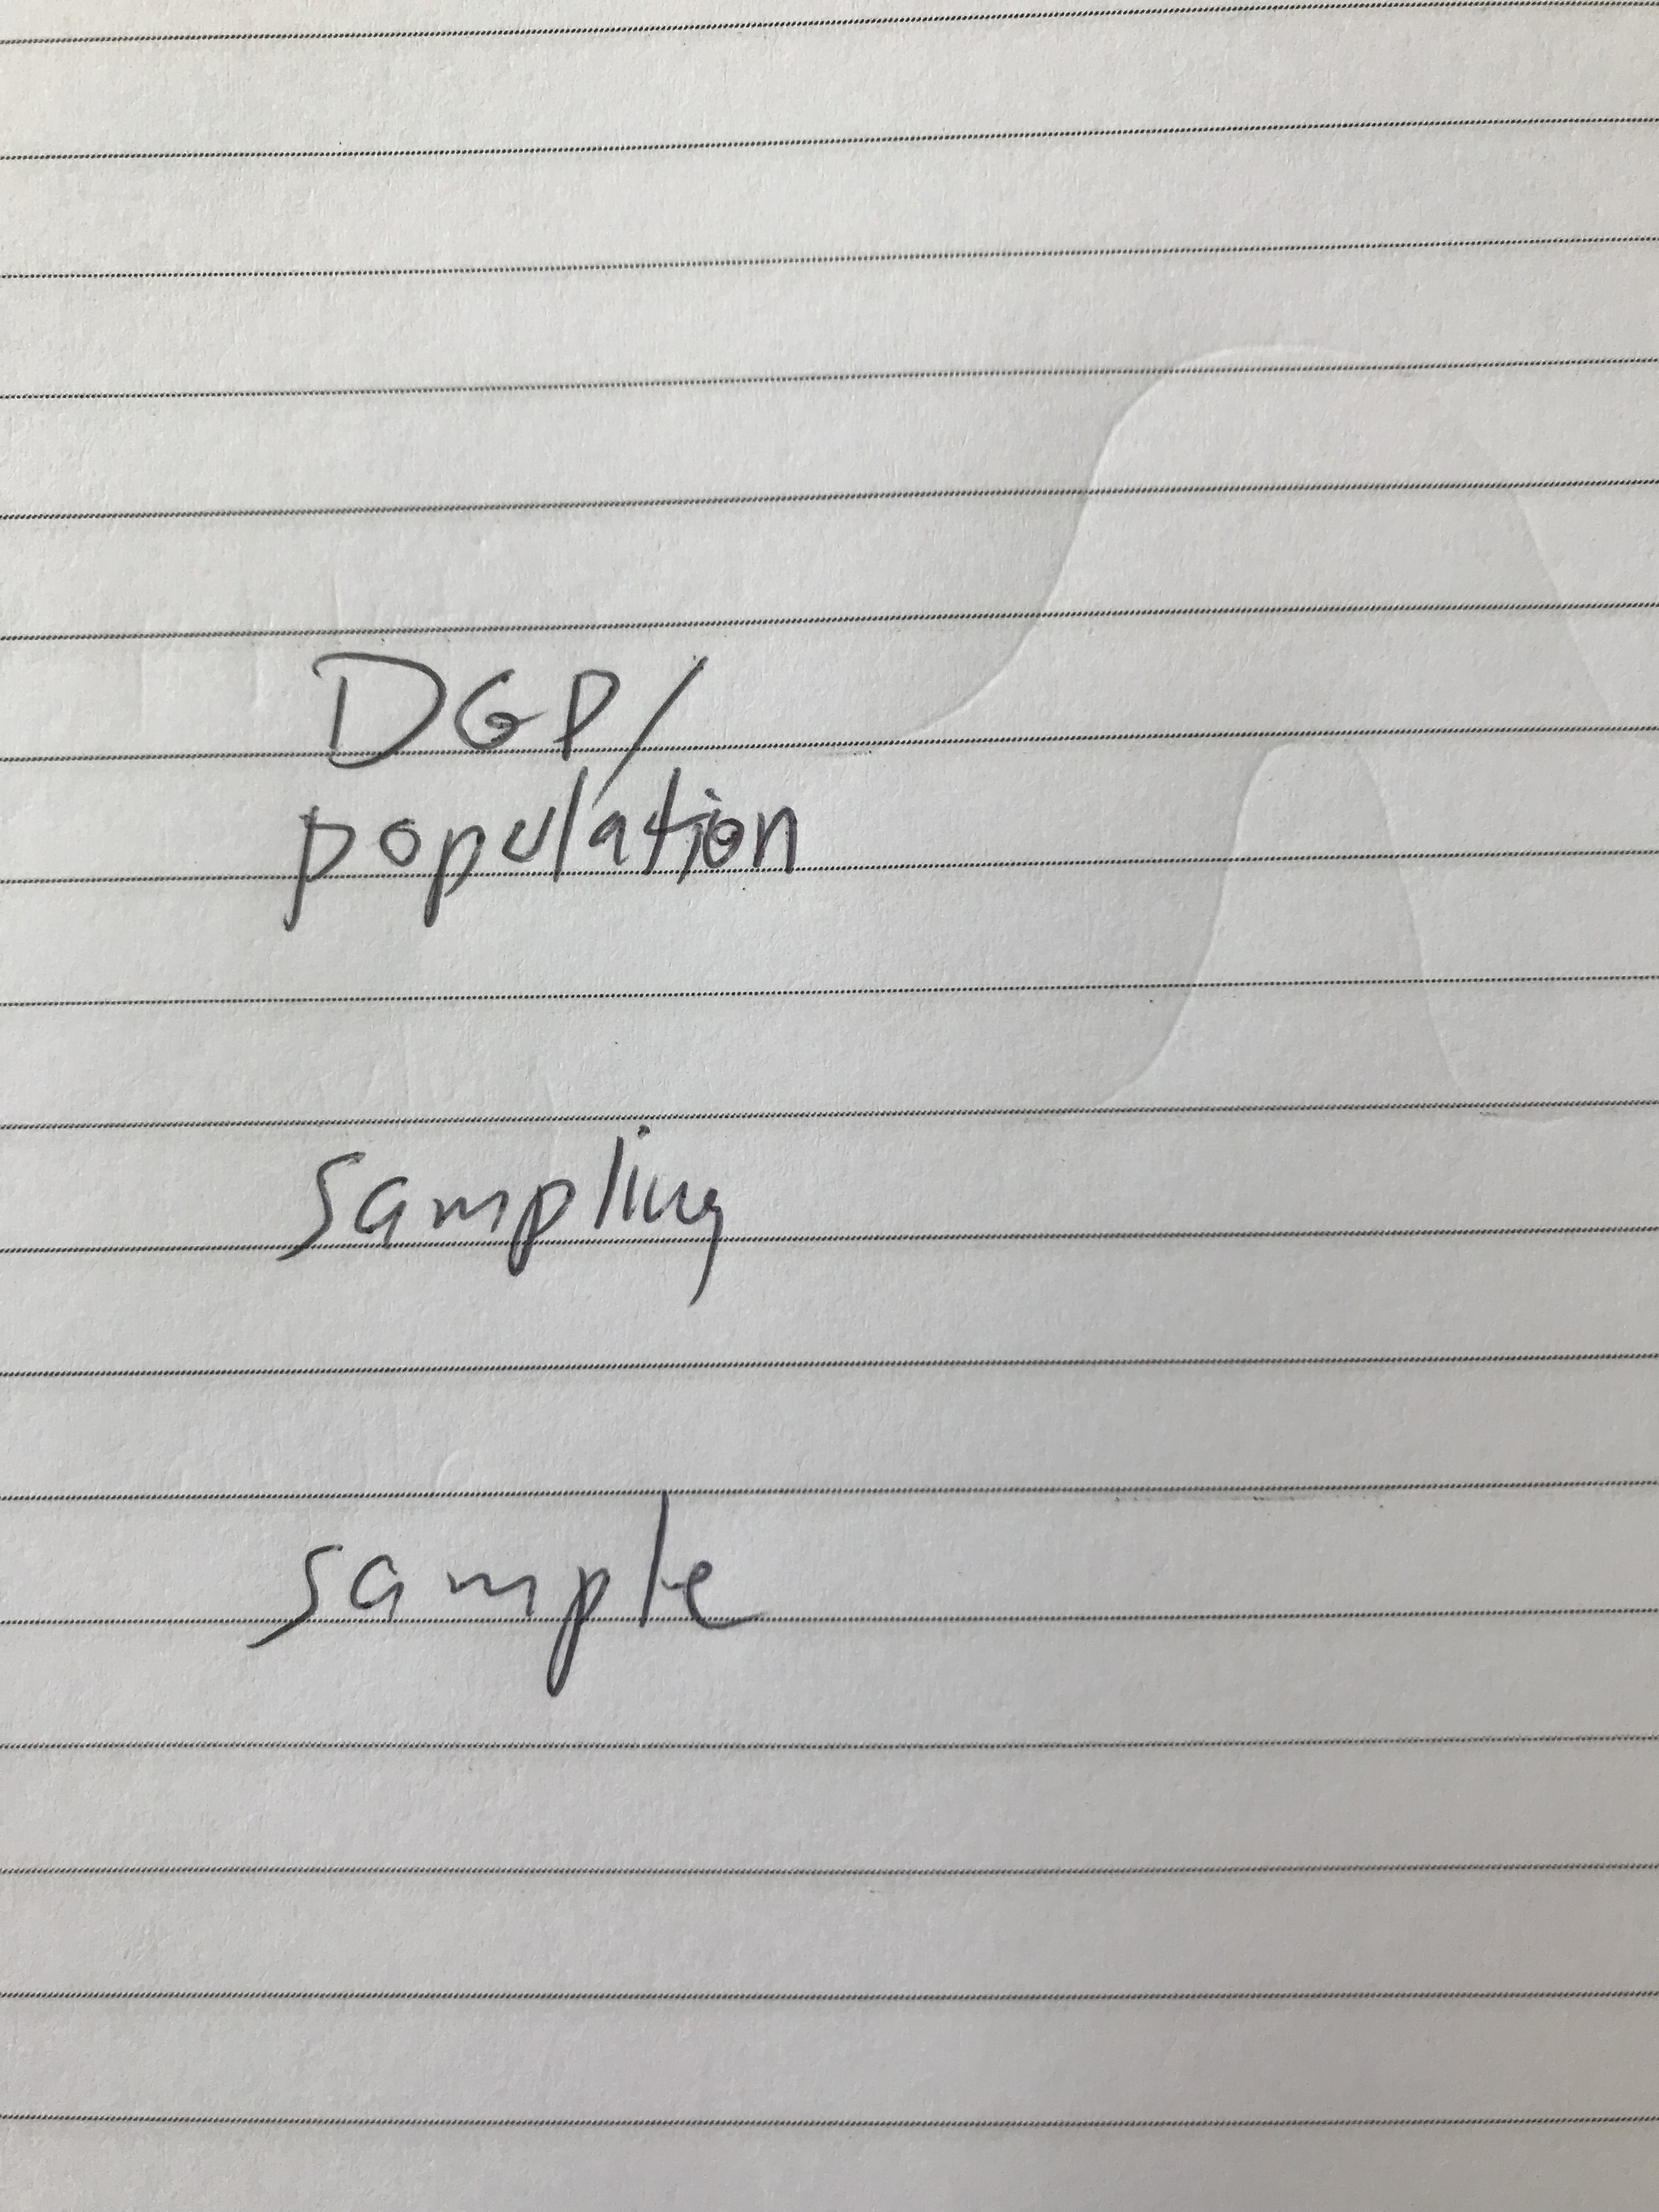 DGP/
population
sampling
sample